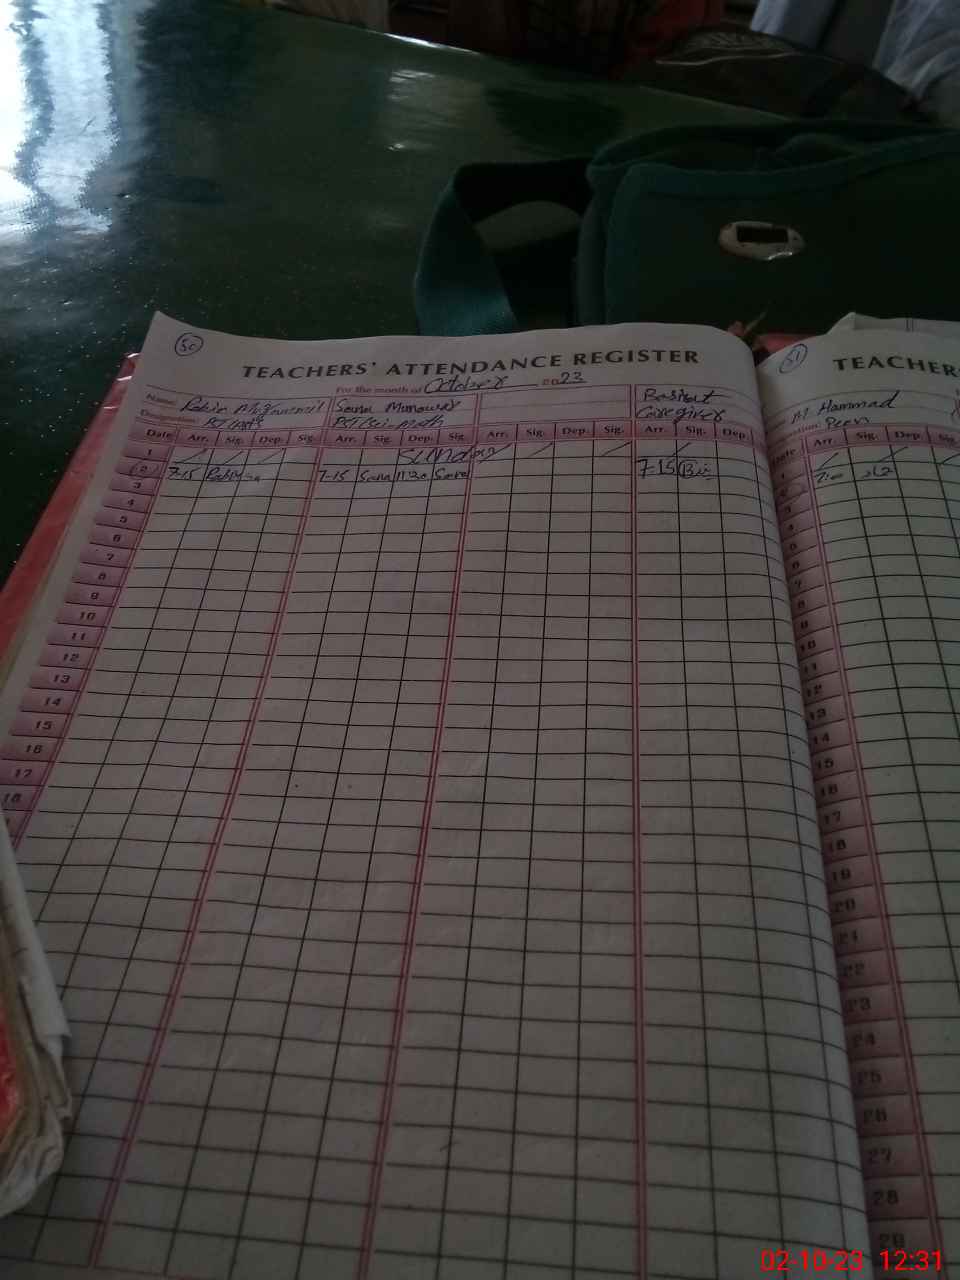 50
TEACHERS' ATTENDANCE REGISTER
For the month of October 2023
Name: Sana Munawar Basharat
Designation: PST (Arts) PST (Sci-Math) Caregiver
Date Arr. Sig. Dep. Sig. Arr. Sig. Dep. Sig. Arr. Sig. Dep. Sig. Arr. Sig. Dep.
1 Sunday
2 7-15 7-15 Sana 11:30 Sana 7-15 Bis
3
4
5
6
7
8
9
10
11
12
13
14
15
16
17
18
51
TEACHERS
M. Hammad
Peon
Date Arr. Sig. Dep. Sig.
1
2 7:00
3
4
5
6
7
8
9
10
11
12
13
14
15
16
17
18
19
20
21
22
23
24
25
26
27
28
29
02-10-23 12:31